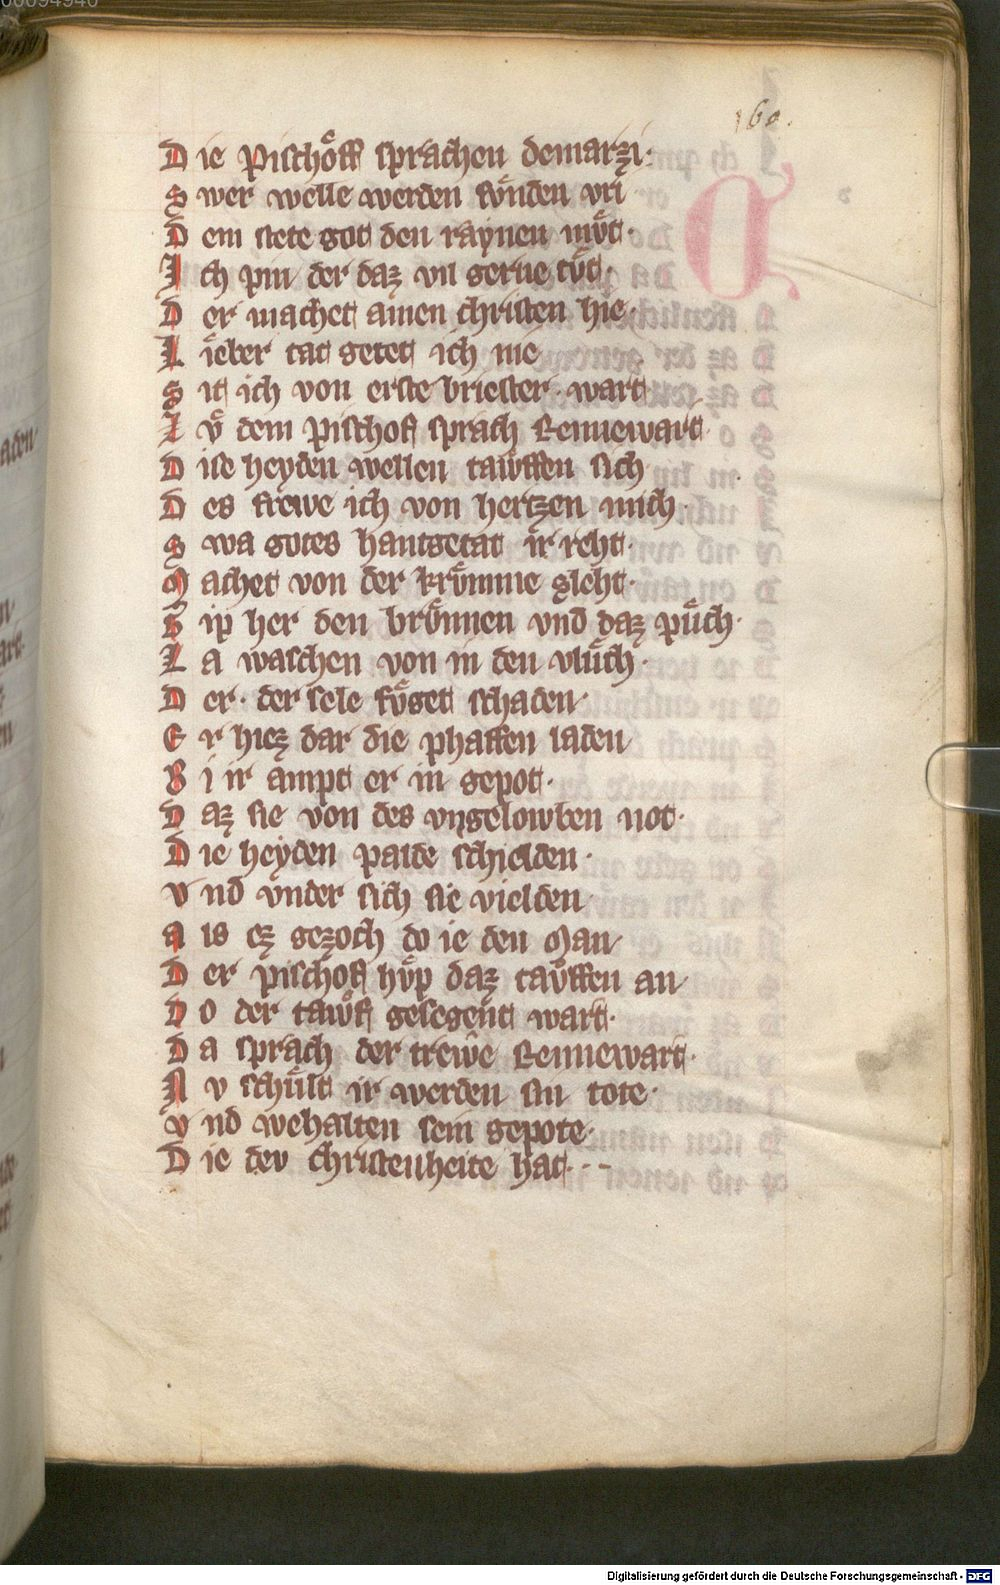 160.
D ie Pischoͤff sprachen demarzi·
S wer welle werden suͤnden vri
D em stete got den raynen muͤt·
I ch pin der daz vil gerne tuͤt·
D er machet ainen christen hie·
L ieber tat getet ich nie
S it ich von erste briester wart
Z vͦ dem Pischof sprach Rennewart·
D ise heyden wellen tauffen sich
D es frewe ich von hertzen mich·
S wa gotes hantgetat ir reht·
M achet von der kruͤmme sleht·
G ip her den bruͤnnen vnd daz puͤch·
L a waschen von in den vluͤch·
D er· der sele fuͤget schaden·
E r hiez dar die phaffen laden
B i ir ampt er in gepot·
D az sie von des vngelowben not·
D ie heyden palde schielden·
V nd vnder sich sie vielden
A ls ez gezoch do ie den Man
D er Pischof huͤp daz tauffen an
D o der tawf gesegent wart·
D a sprach der trewe Rennewart·
N v schuͤlt ir werden sin tote·
V nd wehalten sein gepote·
D ie dev christenheite hat·--
Digitalisierung gefördert durch die Deutsche Forschungsgemeinschaft - DFG